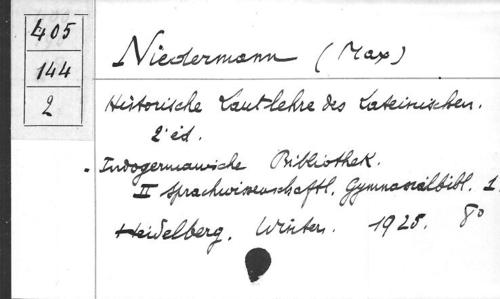 405
144
2
Niedermann (Max)
Historische Lautlehre des Lateinischen.
2 éd.
Indogermanische Bibliothek.
II Sprachwissenschaftl. Gymnasialbibl. 1.
Heidelberg. Winter. 1925. 8°